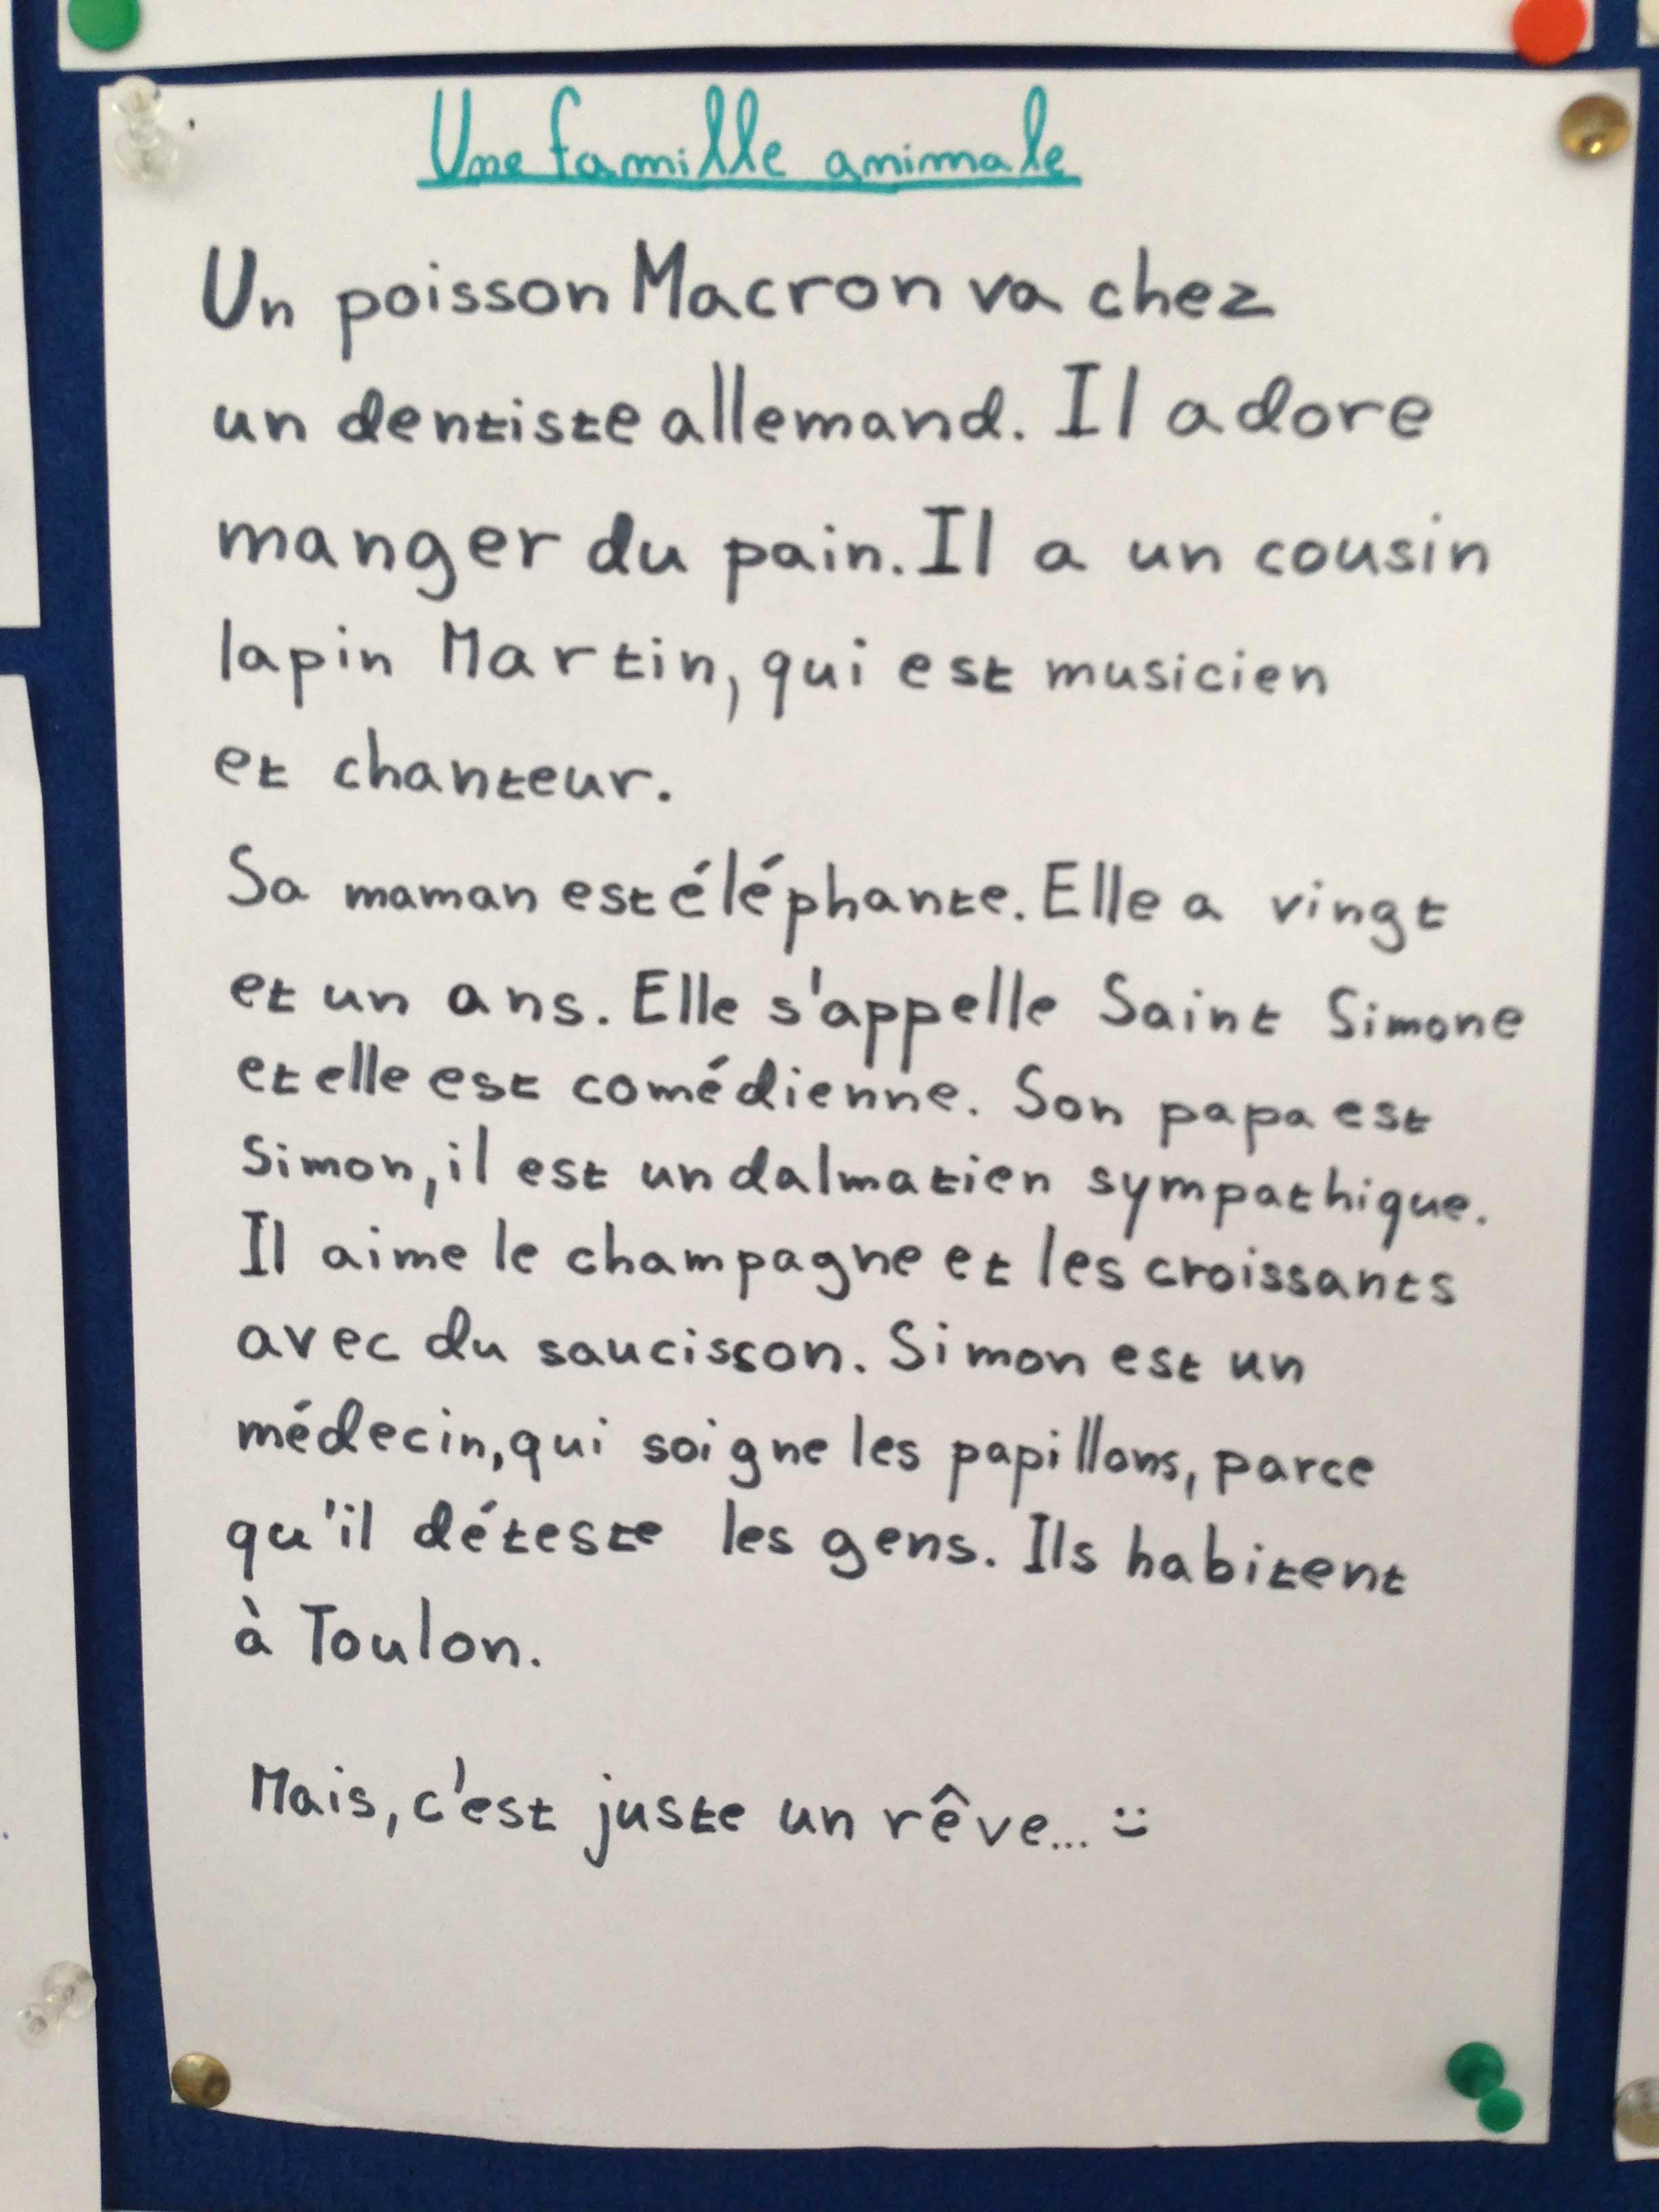 Une famille animale
Un poisson Macron va chez
un dentiste allemand. Il adore
manger du pain. Il a un cousin
lapin Martin, qui est musicien
et chanteur.
Sa maman est éléphante. Elle a vingt
et un ans. Elle s'appelle Saint Simone
et elle est comédienne. Son papa est
Simon, il est un dalmatien sympathique.
Il aime le champagne et les croissants
avec du saucisson. Simon est un
médecin, qui soigne les papillons, parce
qu'il déteste les gens. Ils habitent
à Toulon.
Mais, c'est juste un rêve... :)